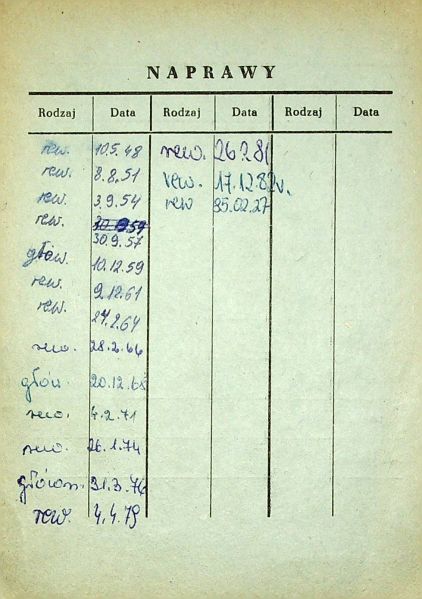 NAPRAWY
Rodzaj Data Rodzaj Data Rodzaj Data
rew. 10.5.48
rew. 8.8.51
rew. 3.9.54
rew.
30.9.57
głów. 10.12.59
rew. 9.12.61
rew. 24.2.64
rew. 28.2.66
głów. 20.12.68
rew. 4.2.71
rew. 26.1.74
główn. 31.3.76
rew. 4.4.79
rew. 26.2.81
rew. 17.12.82r.
rew 85.02.27